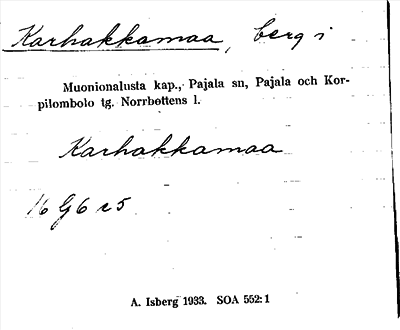 Karhakkamaa, berg i
Muonionalusta kap., Pajala sn, Pajala och Kor-
pilombolo tg. Norrbottens l.
Karhakkamaa
16 G 6 c 5
A. Isberg 1933. SOA 552:1